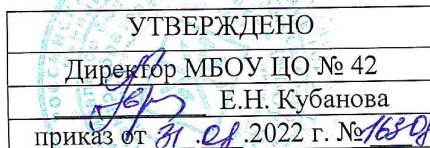 УТВЕРЖДЕНО
Директор МБОУ ЦО № 42
Е.Н. Кубанова
приказ от 31 .08 .2022 г. №